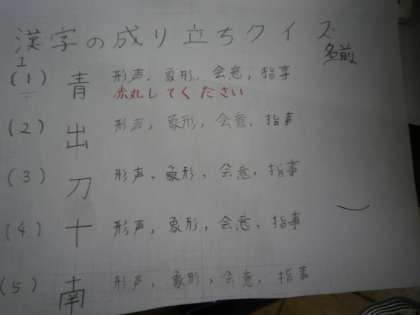 漢字の成り立ちクイズ
名前
(1) 青 形声、象形、会意、指事
赤丸してください
(2) 出 形声、象形、会意、指事
(3) 刀 形声、象形、会意、指事
(4) 十 形声、象形、会意、指事
(5) 南 形声、象形、会意、指事